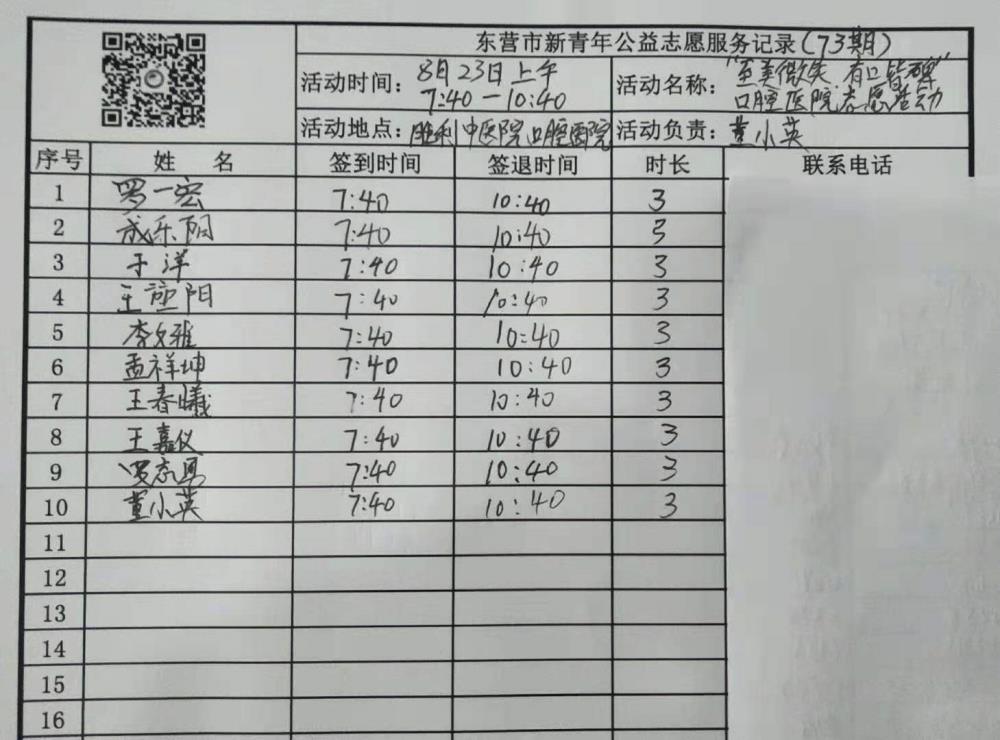 东营市新青年公益志愿服务记录(73期)
活动时间: 8月23日上午 7:40—10:40
活动名称: "至美微笑 有口皆碑" 口腔医院志愿活动
活动地点: 胜利中医院口腔医院 活动负责: 董小英
序号 姓名 签到时间 签退时间 时长 联系电话
1 罗一宏 7:40 10:40 3
2 成乐阳 7:40 10:40 3
3 于洋 7:40 10:40 3
4 王 阳 7:40 10:40 3
5 李 雅 7:40 10:40 3
6 孟祥坤 7:40 10:40 3
7 王春曦 7:40 10:40 3
8 王嘉仪 7:40 10:40 3
9 罗志勇 7:40 10:40 3
10 董小英 7:40 10:40 3
11
12
13
14
15
16